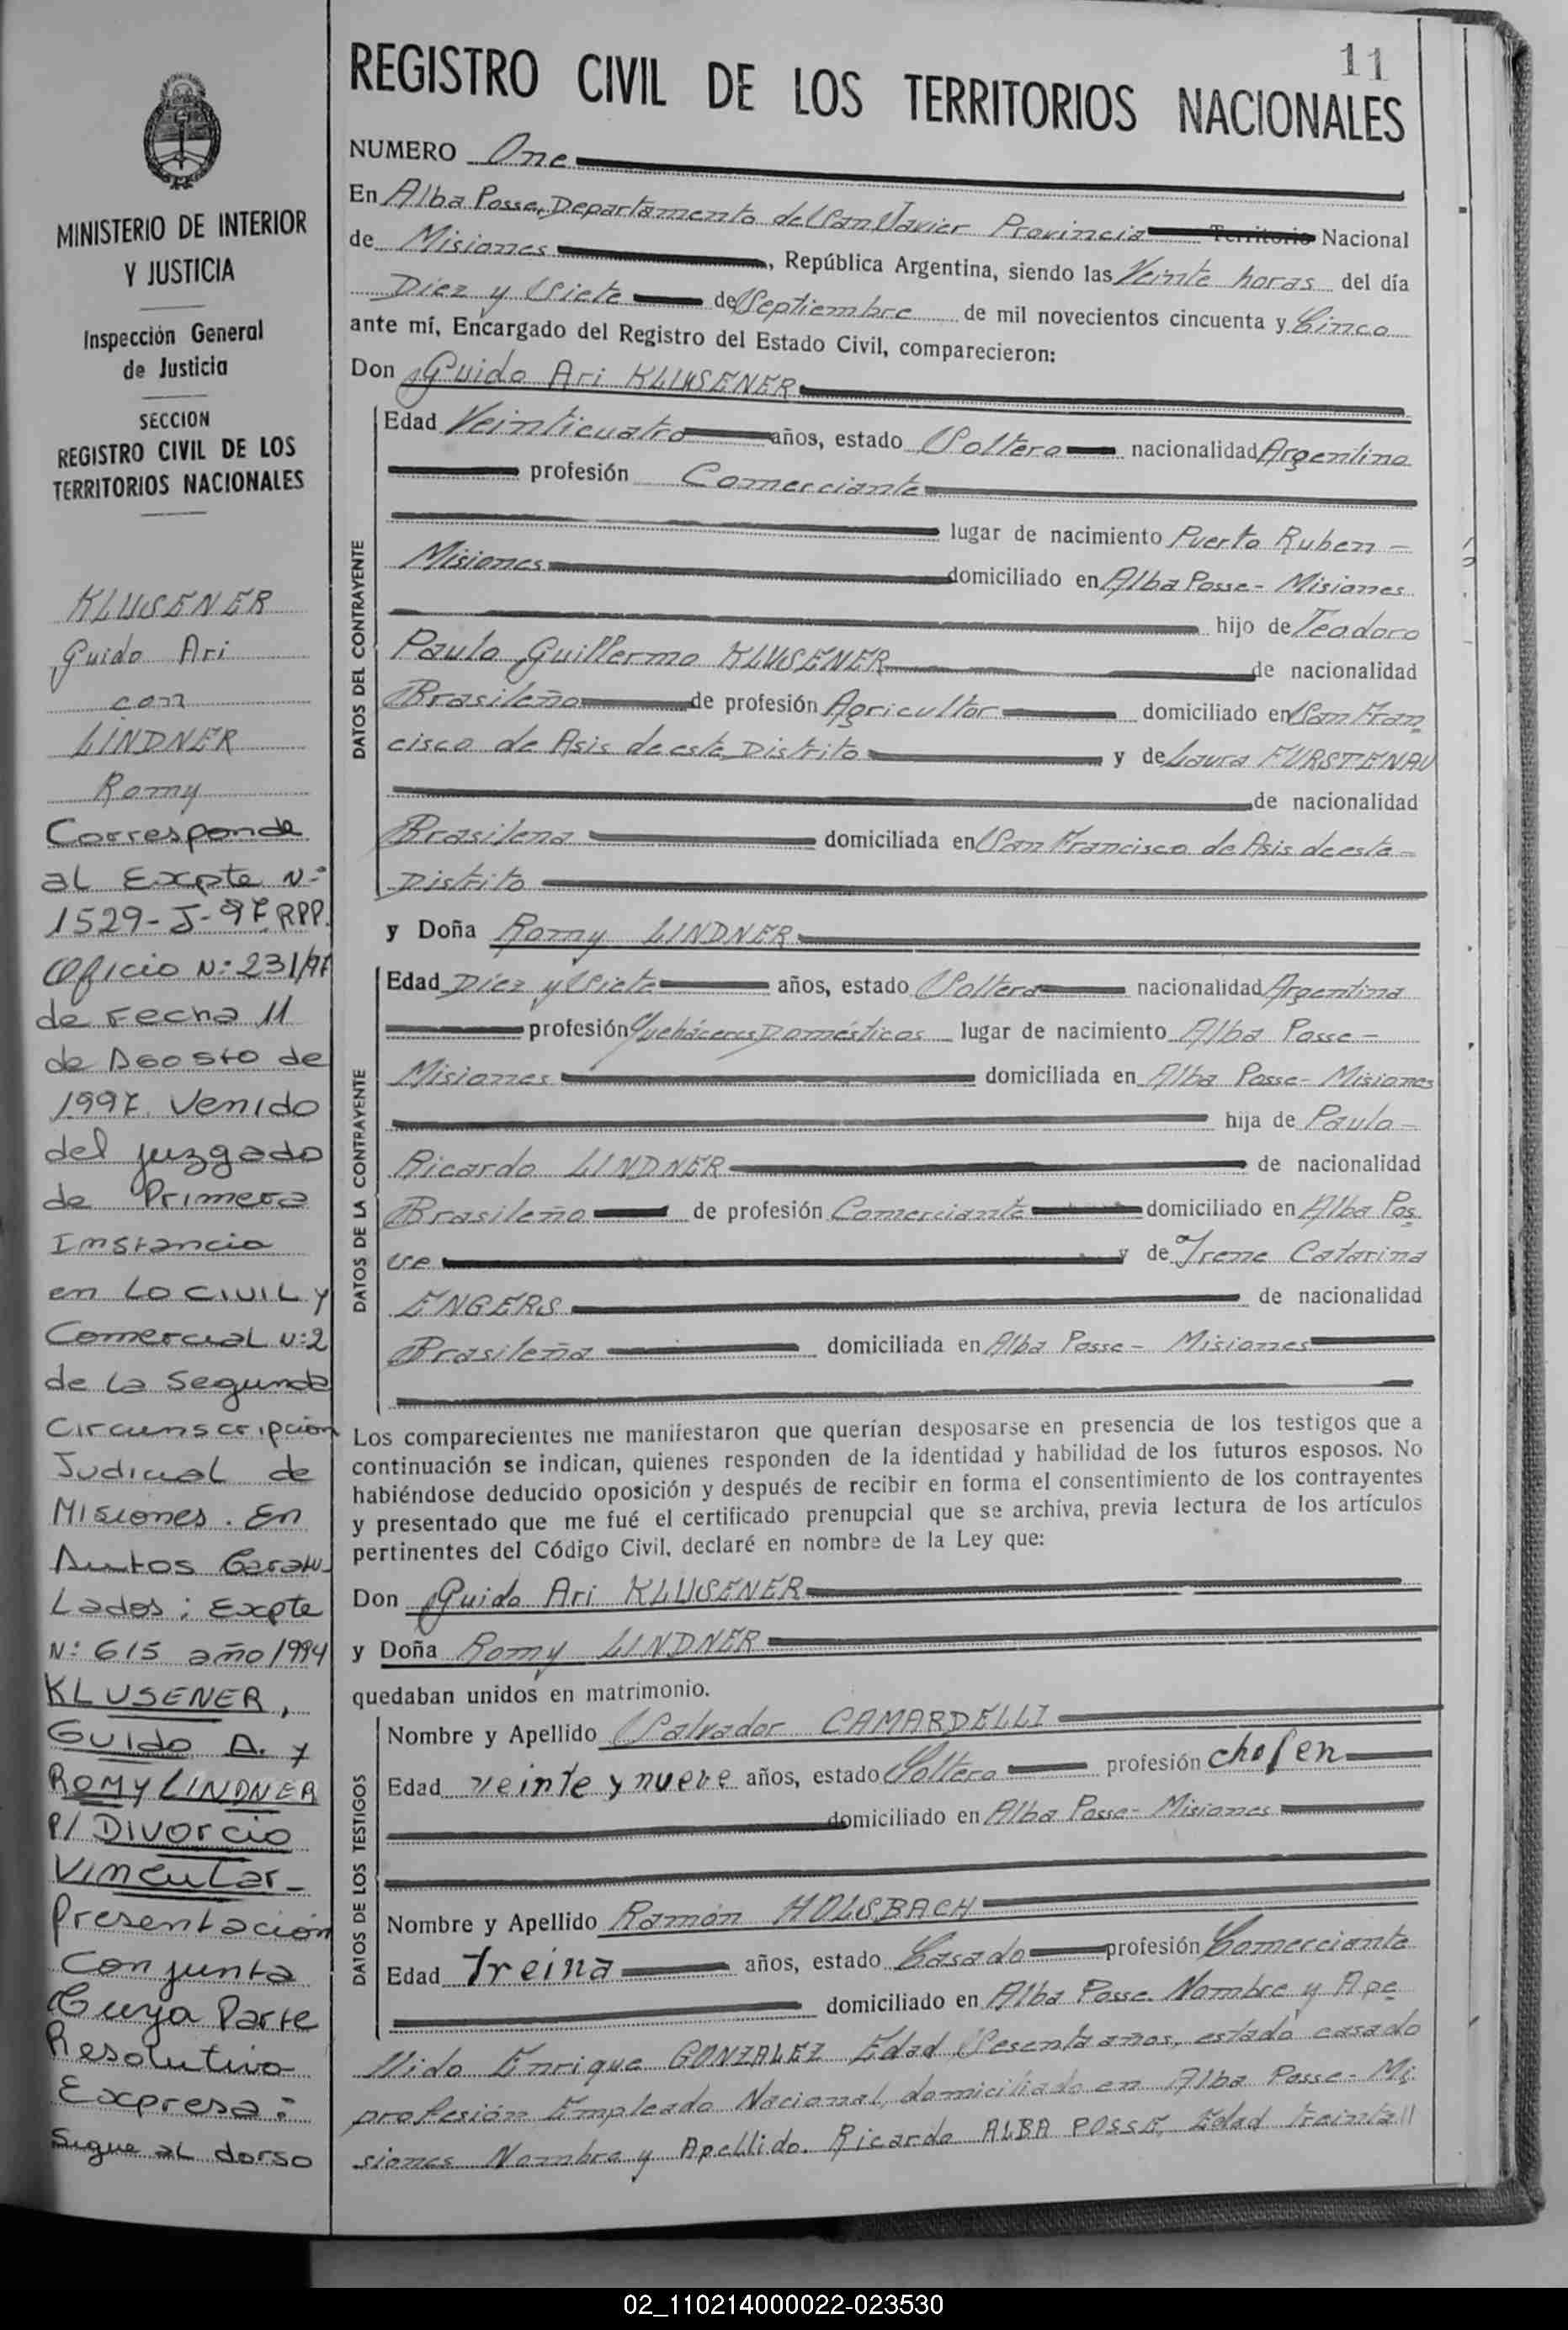 11
REGISTRO CIVIL DE LOS TERRITORIOS NACIONALES
MINISTERIO DE INTERIOR
Y JUSTICIA
Inspección General
de Justicia
SECCION
REGISTRO CIVIL DE LOS
TERRITORIOS NACIONALES
KLUSENER
Guido Ari
con
LINDNER
Romy
Corresponde
al Expte N:
1529-J-97.RPP.
Oficio N: 231/97
de Fecha 11
de Agosto de
1997. Venido
del juzgado
de Primera
Instancia
en lo civil y
Comercial N:2
de la Segunda
Circunscripción
Judicial de
Misiones. En
Autos Caratu-
lados: Expte
N: 615 año 1994
KLUSENER,
Guido A. y
ROMY LINDNER
P/ Divorcio
Vincular-
Presentación
Conjunta
Cuya Parte
Resolutiva
Expresa:
Sigue al dorso
NUMERO Once
En Alba Posse, Departamento de San Javier Provincia Territorio Nacional
de Misiones, República Argentina, siendo las Veinte horas del día
Diez y Siete de Septiembre de mil novecientos cincuenta y Cinco
ante mí, Encargado del Registro del Estado Civil, comparecieron:
Don Guido Ari KLUSENER
DATOS DEL CONTRAYENTE
Edad Veinticuatro años, estado Soltero nacionalidad Argentino
profesión Comerciante
lugar de nacimiento Puerto Ruben -
Misiones domiciliado en Alba Posse - Misiones
hijo de Teodoro
Paulo Guillermo KLUSENER de nacionalidad
Brasileño de profesión Agricultor domiciliado en San Fran
cisco de Asis de este Distrito y de Laura FURSTENAU
de nacionalidad
Brasilena domiciliada en San Francisco de Asis de este -
Distrito
y Doña Romy LINDNER
DATOS DE LA CONTRAYENTE
Edad Diez y Siete años, estado Soltera nacionalidad Argentina
profesión Quehaceres Domésticos lugar de nacimiento Alba Posse -
Misiones domiciliada en Alba Posse - Misiones
hija de Paulo -
Ricardo LINDNER de nacionalidad
Brasileño de profesión Comerciante domiciliado en Alba Pos
se y de Irene Catarina
ENGERS de nacionalidad
Brasileña domiciliada en Alba Posse - Misiones
Los comparecientes me manifestaron que querían desposarse en presencia de los testigos que a
continuación se indican, quienes responden de la identidad y habilidad de los futuros esposos. No
habiéndose deducido oposición y después de recibir en forma el consentimiento de los contrayentes
y presentado que me fué el certificado prenupcial que se archiva, previa lectura de los artículos
pertinentes del Código Civil, declaré en nombre de la Ley que:
Don Guido Ari KLUSENER
y Doña Romy LINDNER
quedaban unidos en matrimonio.
DATOS DE LOS TESTIGOS
Nombre y Apellido Salvador CAMARDELLI
Edad veinte y nueve años, estado Soltero profesión chofen
domiciliado en Alba Posse - Misiones
Nombre y Apellido Ramón HOLSBACH
Edad Treina años, estado Casado profesión Comerciante
domiciliado en Alba Posse. Nombre y Ape
llido Enrique GONZALEZ Edad Sesenta años, estado casado
profesión Empleado Nacional, domiciliado en Alba Posse - Mi
siones Nombre y Apellido. Ricardo ALBA POSSE, Edad treinta//
02_110214000022-023530